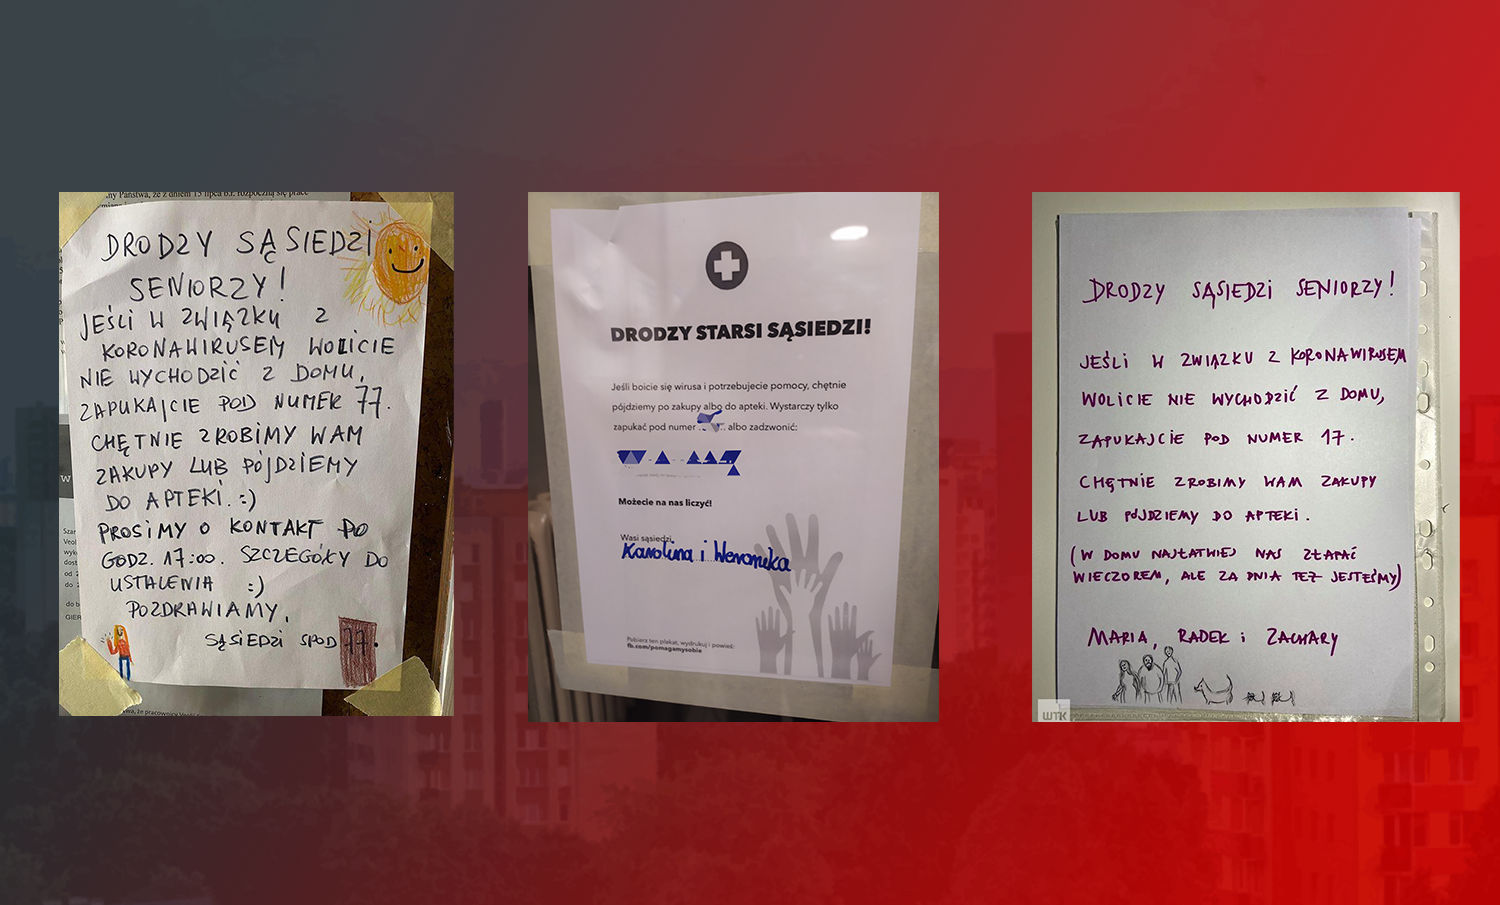 ny Państwa, że z dniem 15 lipca br. rozpoczną się prace
DRODZY SĄSIEDZI
SENIORZY!
JEŚLI W ZWIĄZKU Z
KORONAWIRUSEM WOLICIE
NIE WYCHODZIĆ Z DOMU,
ZAPUKAJCIE POD NUMER 77.
CHĘTNIE ZROBIMY WAM
ZAKUPY LUB PÓJDZIEMY
DO APTEKI. :)
PROSIMY O KONTAKT PO
GODZ. 17:00. SZCZEGÓŁY DO
USTALENIA :)
POZDRAWIAMY,
SĄSIEDZI SPOD 77.
DRODZY STARSI SĄSIEDZI!
Jeśli boicie się wirusa i potrzebujecie pomocy, chętnie
pójdziemy po zakupy albo do apteki. Wystarczy tylko
zapukać pod numer albo zadzwonić:
Możecie na nas liczyć!
Wasi sąsiedzi,
Karolina i Weronika
Pobierz ten plakat, wydrukuj i powieś:
fb.com/pomagamysobie
DRODZY SĄSIEDZI SENIORZY!
JEŚLI W ZWIĄZKU Z KORONAWIRUSEM
WOLICIE NIE WYCHODZIĆ Z DOMU,
ZAPUKAJCIE POD NUMER 17.
CHĘTNIE ZROBIMY WAM ZAKUPY
LUB PÓJDZIEMY DO APTEKI.
(W DOMU NAJŁATWIEJ NAS ZŁAPAĆ
WIECZOREM, ALE ZA DNIA TEŻ JESTEŚMY)
MARIA, RADEK i ZACHARY
WTK